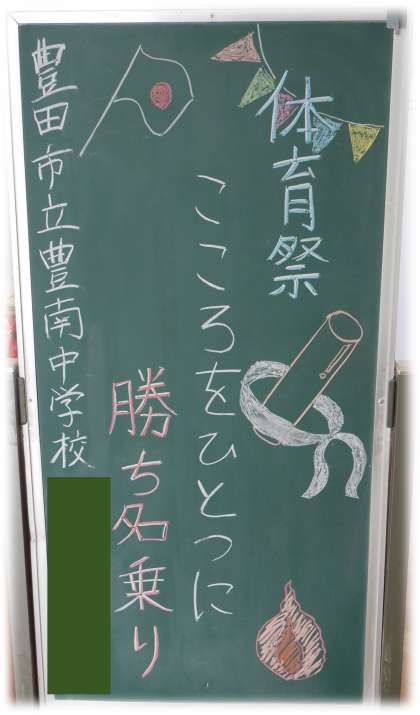 体育祭
こころをひとつに
勝ち名乗り
豊田市立豊南中学校